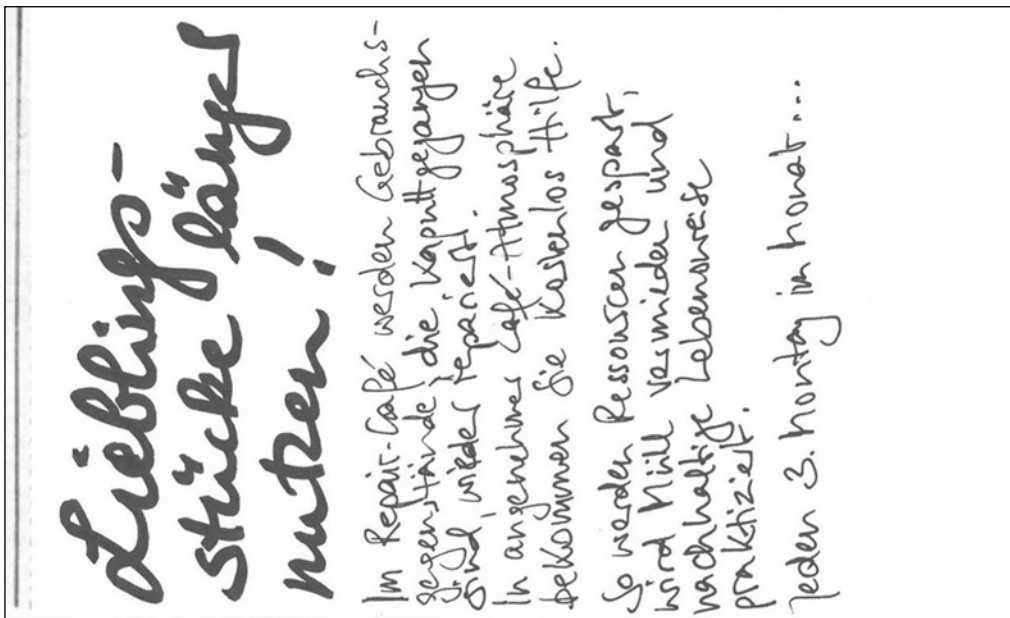 Lieblings-
stücke länger
nutzen!
Im Repair-Café werden Gebrauchs-
gegenstände, die kaputtgegangen
sind, wieder repariert.
In angenehmer Café-Atmosphäre
bekommen Sie kostenlos Hilfe.
So werden Ressourcen gespart,
wird Müll vermieden und
nachhaltige Lebensweise
praktiziert.
Jeden 3. Montag im Monat...